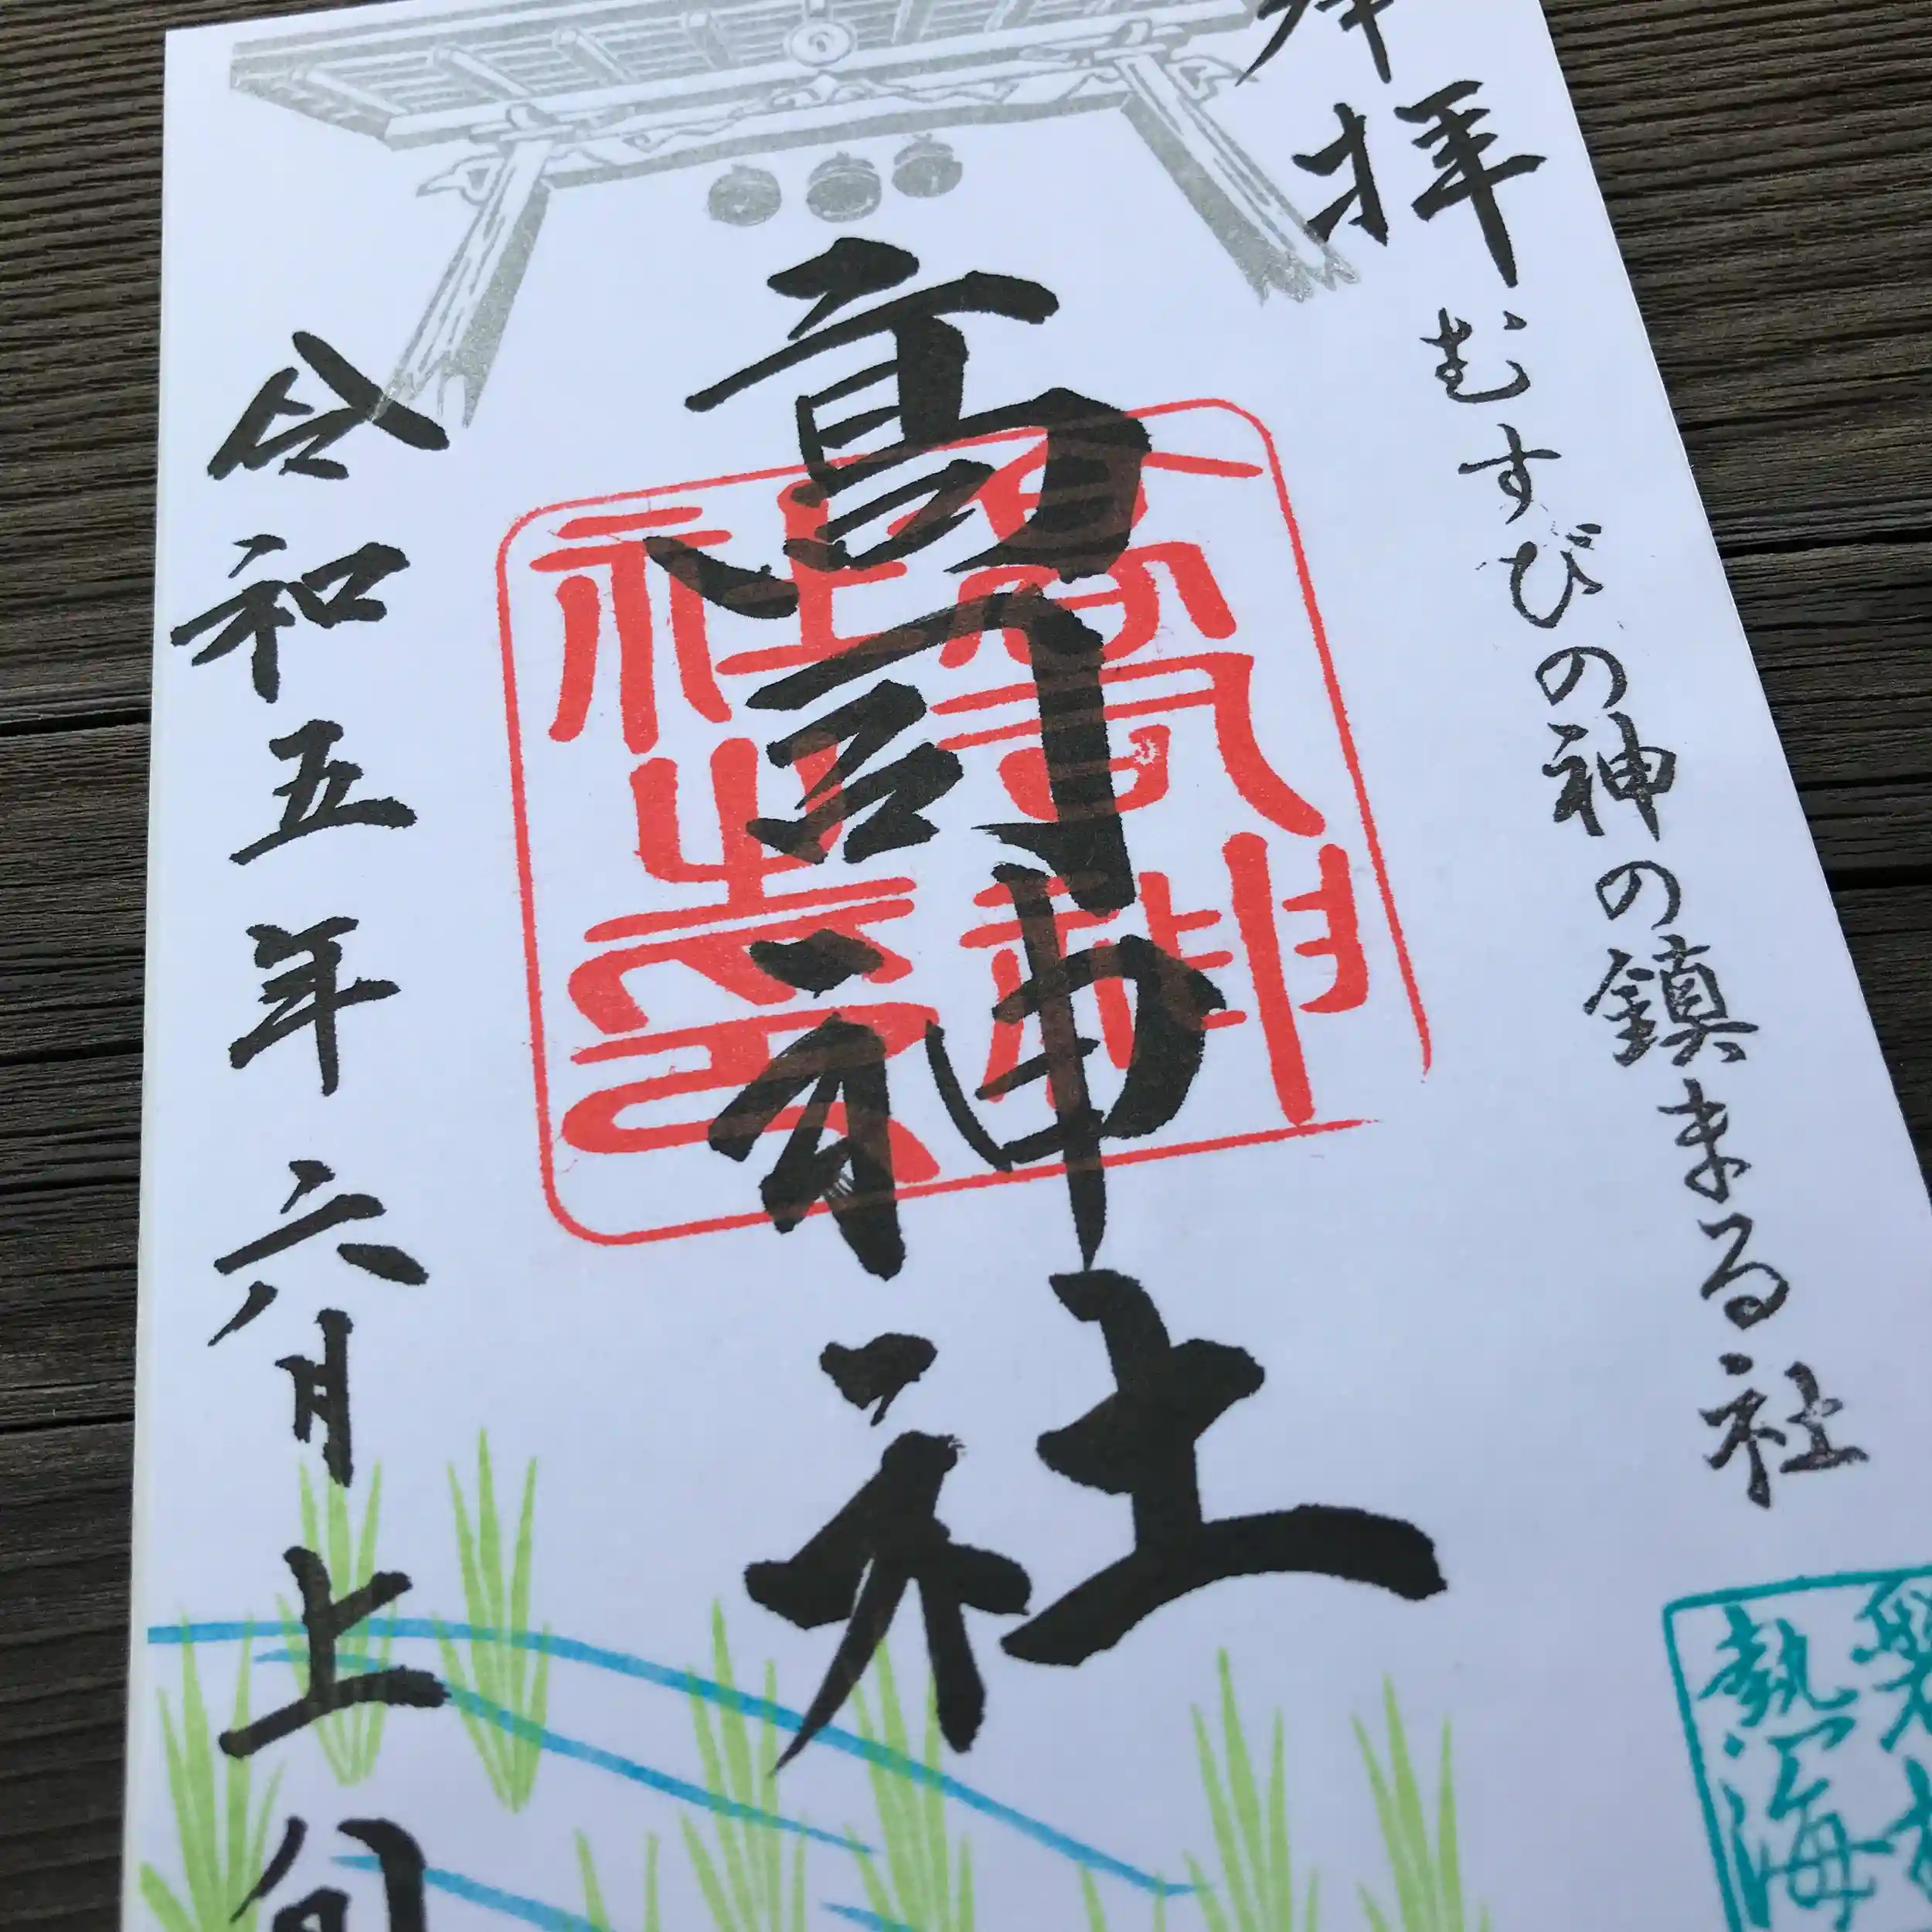 奉拝
むすびの神の鎮まる社
高司神社
高司神社之印
令和五年六月上旬
磐梯熱海